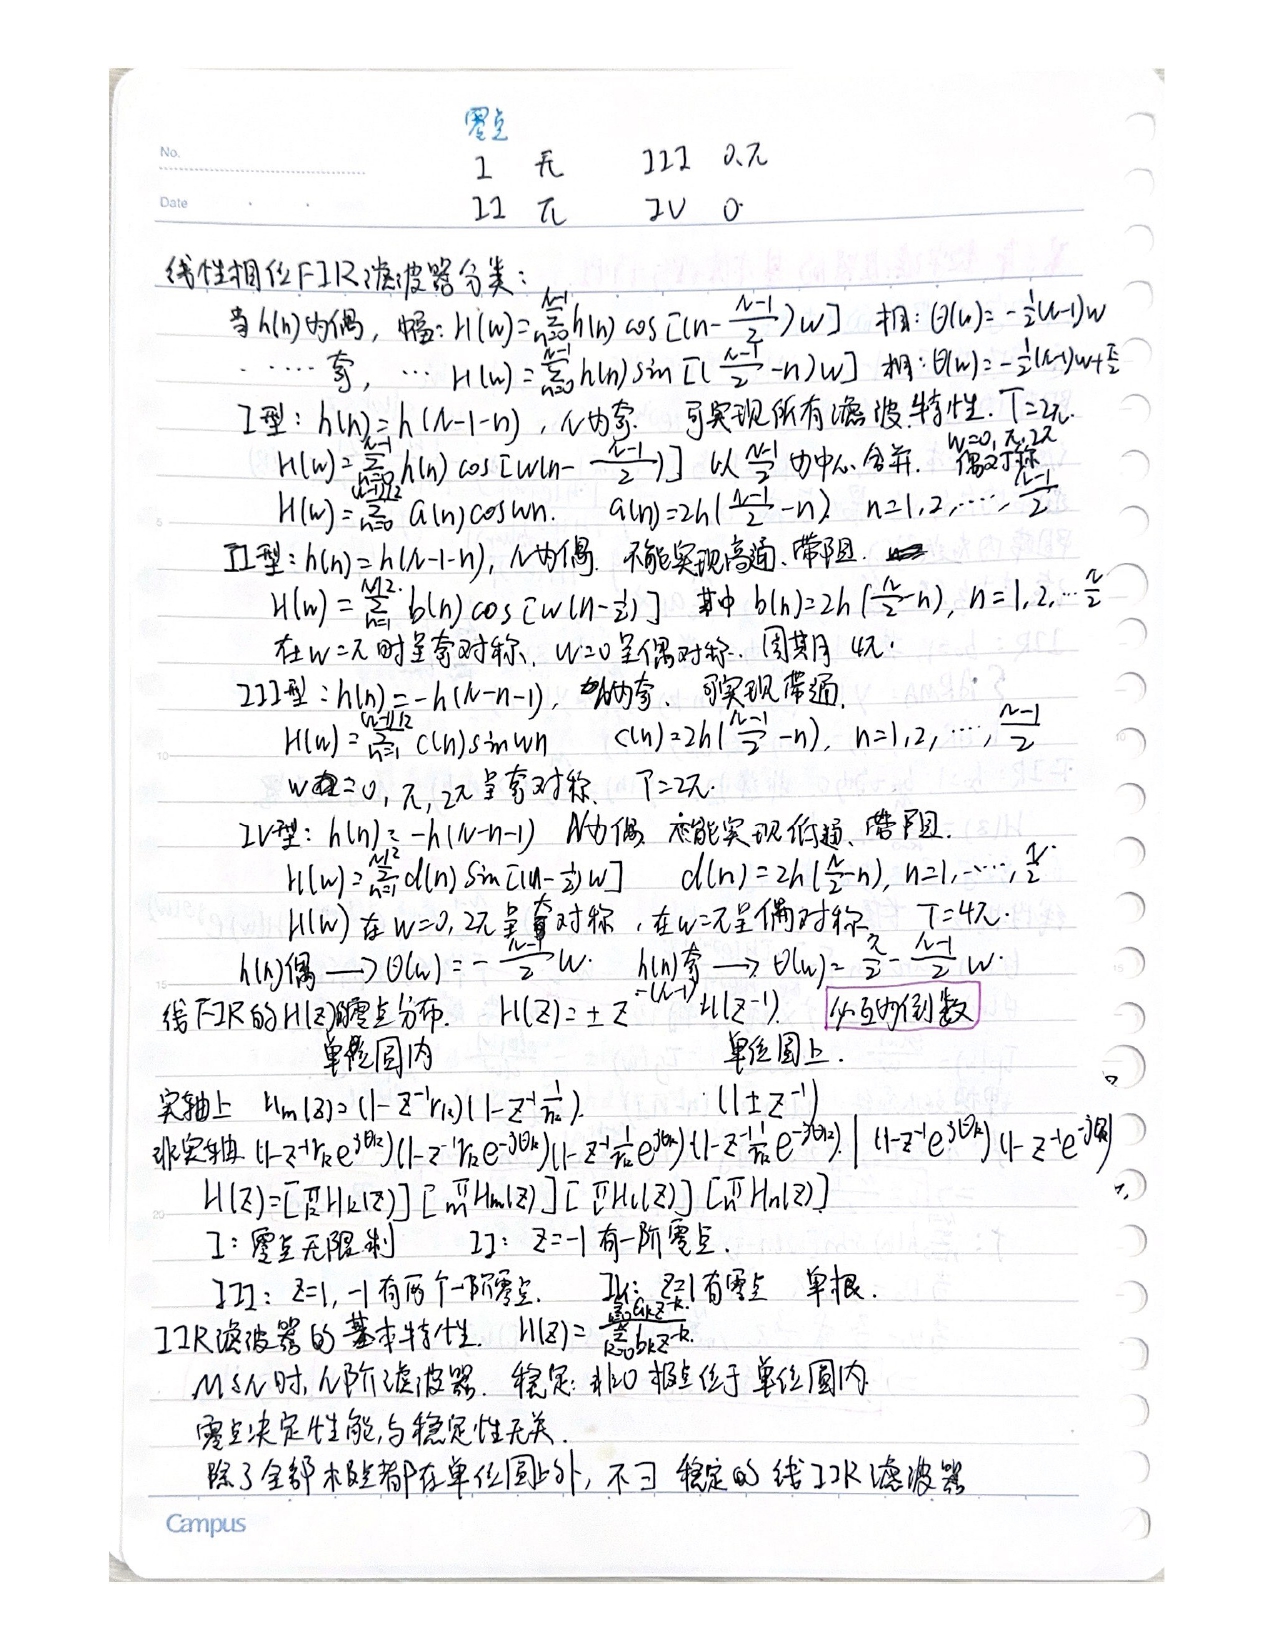 零点
No.
I 无 III 0.π
Date
II π IV 0
线性相位FIR滤波器分类:
当h(n)为偶, 幅: H(w)=∑_{n=0}^{N-1} h(n) cos[(n-\frac{N-1}{2})w] 相: θ(w)=-\frac{1}{2}(N-1)w
····· 奇, ··· H(w)=∑_{n=0}^{N-1} h(n) sin[(\frac{N-1}{2}-n)w] 相: θ(w)=-\frac{1}{2}(N-1)w+\frac{π}{2}
I型: h(n)=h(N-1-n), N为奇. 可实现所有滤波特性. T=2π.
w=0, π, 2π
H(w)=∑_{n=0}^{N-1} h(n) cos[w(n-\frac{N-1}{2})] 以\frac{N-1}{2}为中心合并. 偶对称
H(w)=∑_{n=0}^{(N-1)/2} a(n)coswn. a(n)=2h(\frac{N-1}{2}-n) n=1,2,···,\frac{N-1}{2}
II型: h(n)=h(N-1-n), N为偶. 不能实现高通、带阻.
H(w)=∑_{n=1}^{N/2} b(n) cos[w(n-\frac{1}{2})] 其中 b(n)=2h(\frac{N}{2}-n), n=1,2,···\frac{N}{2}
在w=π时呈奇对称, w=0呈偶对称. 周期 4π.
III型: h(n)=-h(N-n-1), N为奇. 可实现带通.
H(w)=∑_{n=1}^{(N-1)/2} c(n)sinwn c(n)=2h(\frac{N-1}{2}-n), n=1,2,···,\frac{N-1}{2}
w=0, π, 2π呈奇对称. T=2π.
IV型: h(n)=-h(N-n-1) N为偶. 不能实现低通、带阻.
H(w)=∑_{n=1}^{N/2} d(n) sin[(n-\frac{1}{2})w] d(n)=2h(\frac{N}{2}-n), n=1,····,\frac{N}{2}
H(w)在w=0, 2π呈奇对称, 在w=π呈偶对称. T=4π.
h(n)偶 → θ(w)=-\frac{N-1}{2}w. h(n)奇 → θ(w)=\frac{π}{2}-\frac{N-1}{2}w.
线FIR的H(z)的零点分布. H(z)=±z^{-(N-1)}H(z^{-1}). 必互为倒数
单位圆内 单位圆上.
实轴上 H_m(z)=(1-z^{-1}r_k)(1-z^{-1}\frac{1}{r_k}). (1±z^{-1})
非实轴 (1-z^{-1}r_k e^{jθ_k})(1-z^{-1}r_k e^{-jθ_k})(1-z^{-1}\frac{1}{r_k}e^{jθ_k})(1-z^{-1}\frac{1}{r_k}e^{-jθ_k}). | (1-z^{-1}e^{jθ_k})(1-z^{-1}e^{-jθ_k})
H(z)=[∏_k H_k(z)][∏_m H_m(z)][∏_l H_l(z)][∏_n H_n(z)]
I: 零点无限制 II: z=-1有一阶零点.
III: z=1, -1有两个一阶零点. IV: z=1有零点 单根.
IIR滤波器的基本特性. H(z)=\frac{∑a_k z^{-k}}{∑_{k=0} b_k z^{-k}}
M≤N时, N阶滤波器. 稳定: 非0极点位于单位圆内
零点决定性能, 与稳定性无关.
除了全部极点都在单位圆上外, 不∃ 稳定的线IIR滤波器
Campus